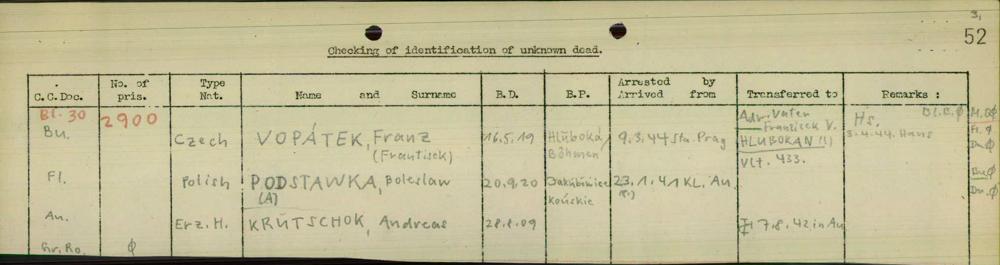 3,
52
Checking of identification of unknown dead.
C.C.Doc. No. of pris. Type Nat. Name and Surname B.D. B.P. Arrested by Arrived from Transferred to Remarks :
Bl. 30 2900 Adr. Vater Hs. Bl.E.∅ M.∅
Bu. Frantisek V. 3.4.44. Haus Fl.∅
Czech VOPÁTEK, Franz 16.5.19 Hluboká/ 9.3.44 Sta. Prag HLUBOKAN (!) Da.∅
(Frantisek) Böhmen Vlt. 433.
Fl. Polish PODSTAWKA, Boleslaw 20.9.20 23.1.41 KL. Au. Bu.∅
(A) Końskie Da.∅
Au. Erz.H. KRUTSCHOK, Andreas 7.8.42 in Au
Gr. Ro. ∅